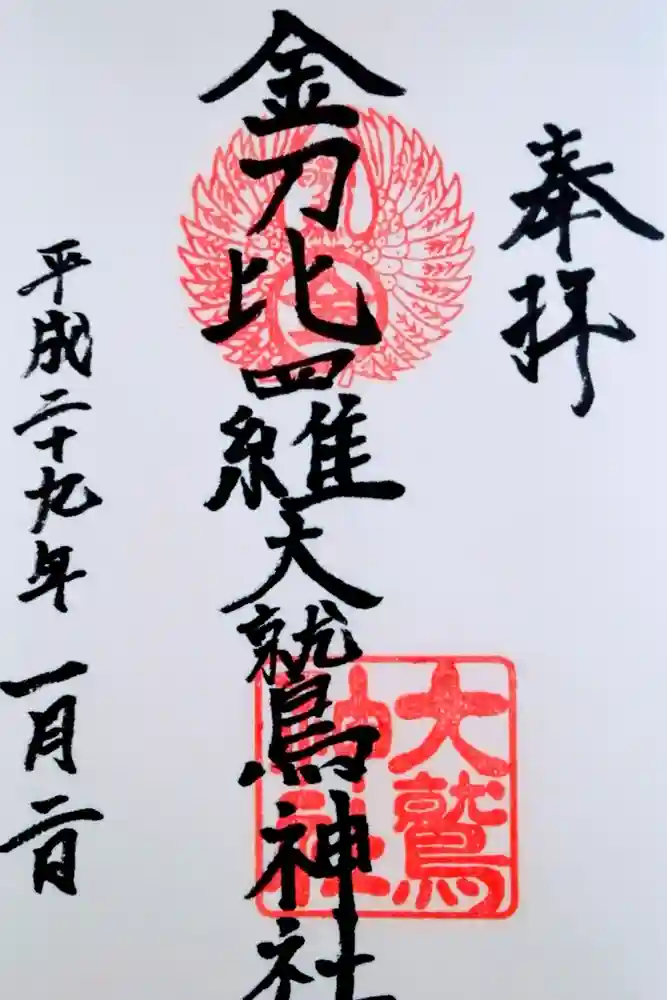 奉拝
金刀比羅大鷲神社
大鷲
神社
平成二十九年一月二日